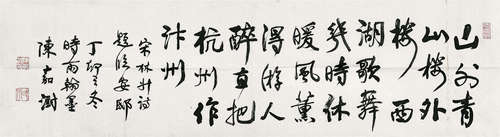 山外青
山楼外
楼西
湖歌舞
几时休
暖风薰
得游人
醉直把
杭州作
汴州
宋林升诗
题临安邸
丁卯之冬
时雨翰墨
陈嘉澍